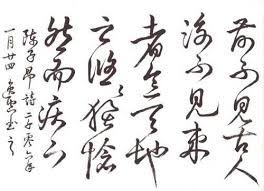 前不見古人
後不見來
者念天地
之悠悠獨愴
然而涕下
陳子昂詩二千零六年
一月廿四